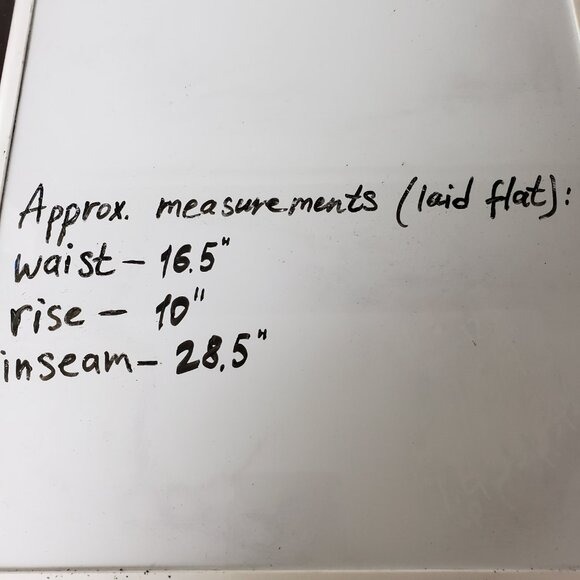 Approx. measurements (laid flat):
waist – 16.5"
rise – 10"
inseam – 28.5"